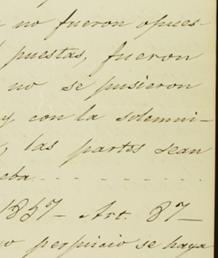 no fueron opues
puestas, fueron
no se pusieron
y con la solemni-
las partes sean
eba
1857 - Art. 37 -
perjuicio se haya